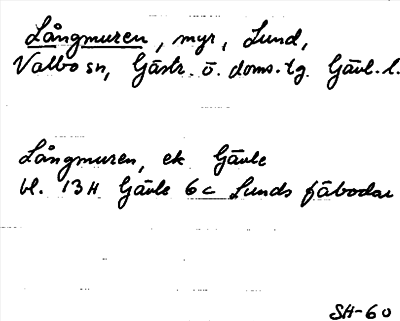 Långmuren, myr, Lund,
Valbo sn, Gästr. ö. doms.tg. Gävl. l.
Långmuren, ek Gävle
bl. 13H Gävle 6c Lunds fäbodar
SH-60